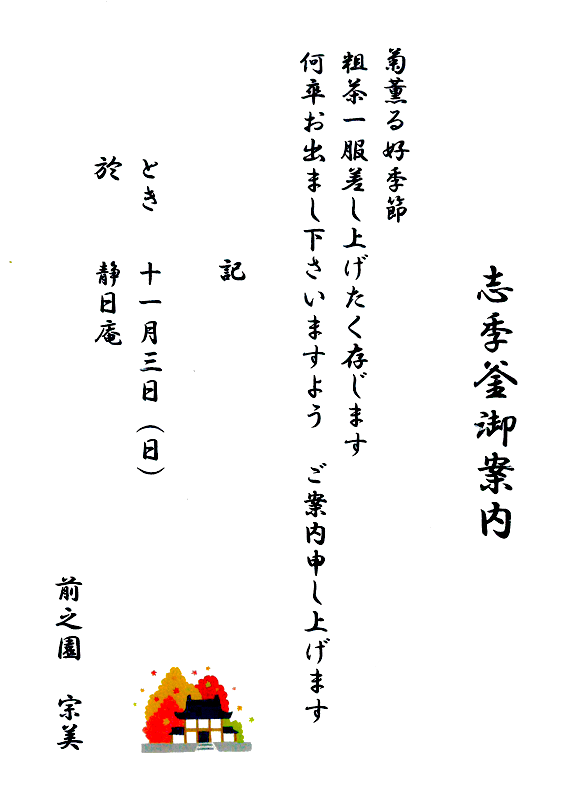 志季釜御案内
菊薫る好季節
粗茶一服差し上げたく存じます
何卒お出まし下さいますよう　ご案内申し上げます
記
とき　十一月三日（日）
於　静日庵
前之園　宗美